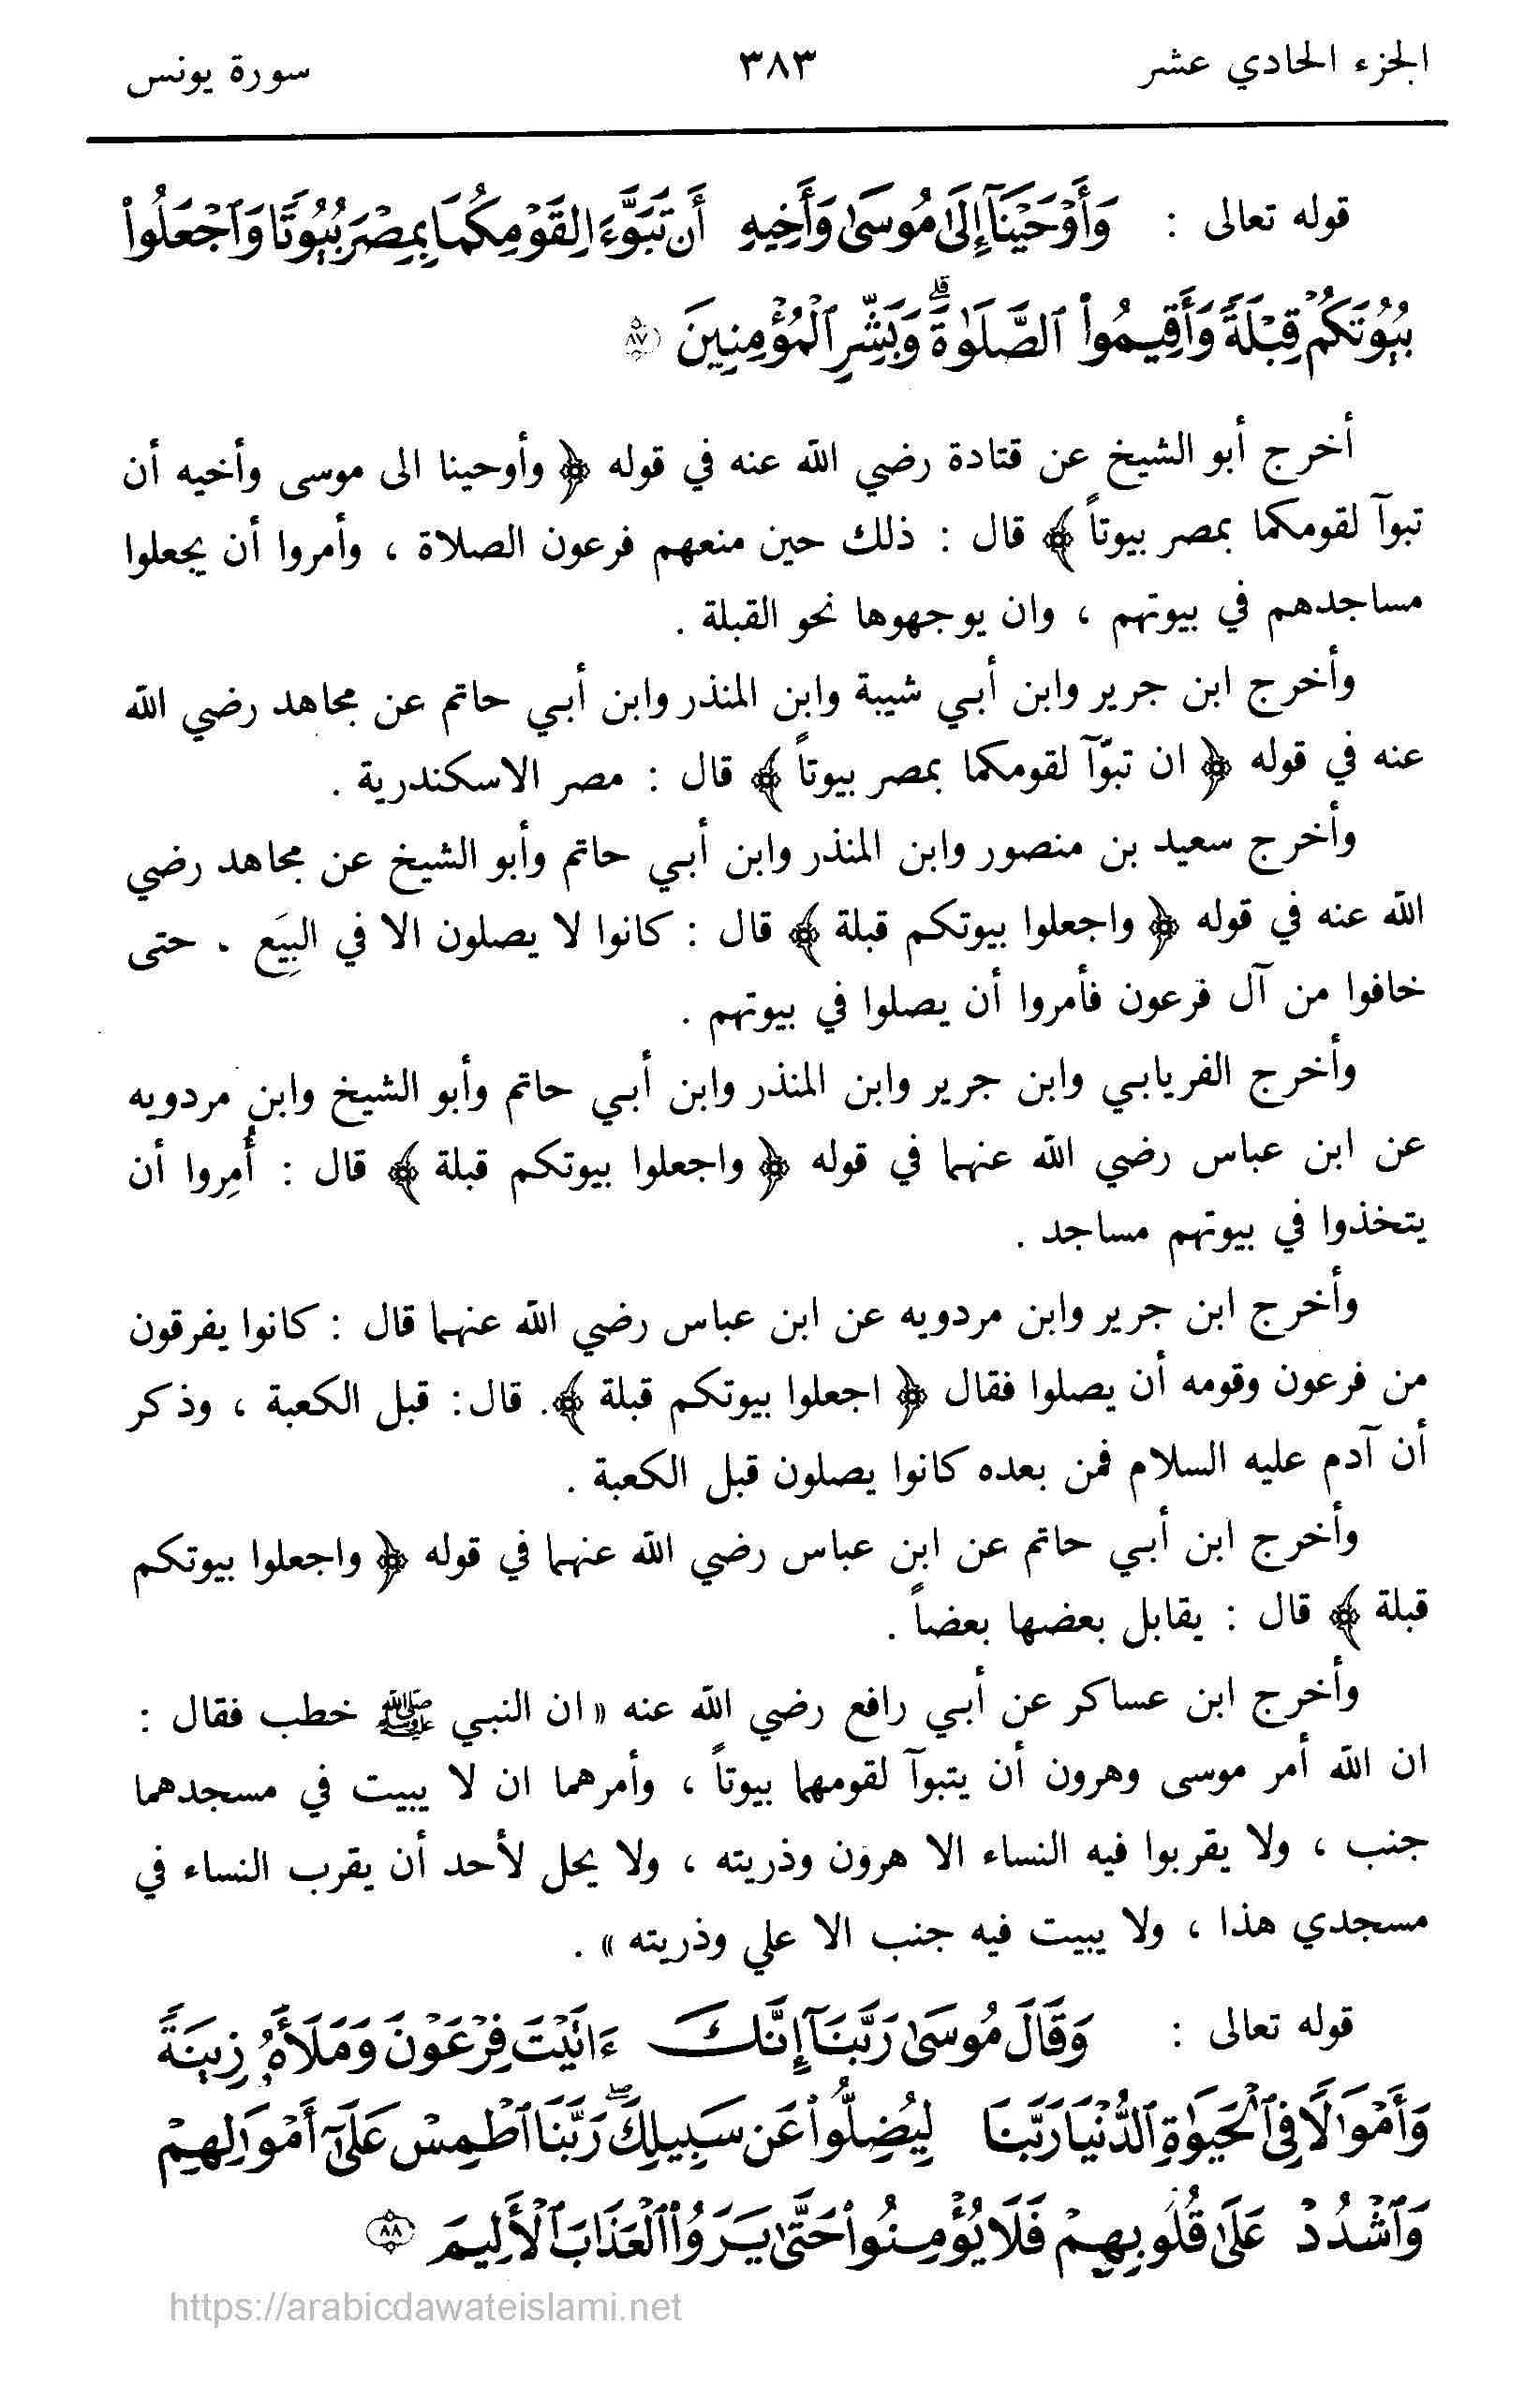 الجزء الحادي عشر ٣٨٣ سورة يونس
قوله تعالى : وَأَوْحَيْنَآ إِلَىٰ مُوسَىٰ وَأَخِيهِ أَن تَبَوَّءَا لِقَوْمِكُمَا بِمِصْرَ بُيُوتًا وَٱجْعَلُوا۟
بُيُوتَكُمْ قِبْلَةً وَأَقِيمُوا۟ ٱلصَّلَوٰةَ ۗ وَبَشِّرِ ٱلْمُؤْمِنِينَ ﴿٨٧﴾
أخرج أبو الشيخ عن قتادة رضي الله عنه في قوله ﴿ وأوحينا الى موسى وأخيه أن
تبوآ لقومكما بمصر بيوتاً ﴾ قال : ذلك حين منعهم فرعون الصلاة ، وأمروا أن يجعلوا
مساجدهم في بيوتهم ، وان يوجهوها نحو القبلة .
وأخرج ابن جرير وابن أبي شيبة وابن المنذر وابن أبي حاتم عن مجاهد رضي الله
عنه في قوله ﴿ ان تبوّآ لقومكما بمصر بيوتاً ﴾ قال : مصر الاسكندرية .
وأخرج سعيد بن منصور وابن المنذر وابن أبي حاتم وأبو الشيخ عن مجاهد رضي
الله عنه في قوله ﴿ واجعلوا بيوتكم قبلة ﴾ قال : كانوا لا يصلون الا في البِيَع ، حتى
خافوا من آل فرعون فأمروا أن يصلوا في بيوتهم .
وأخرج الفريابي وابن جرير وابن المنذر وابن أبي حاتم وأبو الشيخ وابن مردويه
عن ابن عباس رضي الله عنهما في قوله ﴿ واجعلوا بيوتكم قبلة ﴾ قال : أُمِروا أن
يتخذوا في بيوتهم مساجد .
وأخرج ابن جرير وابن مردويه عن ابن عباس رضي الله عنهما قال : كانوا يفرقون
من فرعون وقومه أن يصلوا فقال ﴿ اجعلوا بيوتكم قبلة ﴾. قال: قبل الكعبة ، وذكر
أن آدم عليه السلام فمن بعده كانوا يصلون قبل الكعبة .
وأخرج ابن أبي حاتم عن ابن عباس رضي الله عنهما في قوله ﴿ واجعلوا بيوتكم
قبلة ﴾ قال : يقابل بعضها بعضاً .
وأخرج ابن عساكر عن أبي رافع رضي الله عنه « ان النبي ﷺ خطب فقال :
ان الله أمر موسى وهرون أن يتبوآ لقومهما بيوتاً ، وأمرهما ان لا يبيت في مسجدهما
جنب ، ولا يقربوا فيه النساء الا هرون وذريته ، ولا يحل لأحد أن يقرب النساء في
مسجدي هذا ، ولا يبيت فيه جنب الا علي وذريته » .
قوله تعالى : وَقَالَ مُوسَىٰ رَبَّنَآ إِنَّكَ ءَاتَيْتَ فِرْعَوْنَ وَمَلَأَهُۥ زِينَةً
وَأَمْوَٰلًا فِى ٱلْحَيَوٰةِ ٱلدُّنْيَا رَبَّنَا لِيُضِلُّوا۟ عَن سَبِيلِكَ ۖ رَبَّنَا ٱطْمِسْ عَلَىٰٓ أَمْوَٰلِهِمْ
وَٱشْدُدْ عَلَىٰ قُلُوبِهِمْ فَلَا يُؤْمِنُوا۟ حَتَّىٰ يَرَوُا۟ ٱلْعَذَابَ ٱلْأَلِيمَ ﴿٨٨﴾
https://arabicdawateislami.net